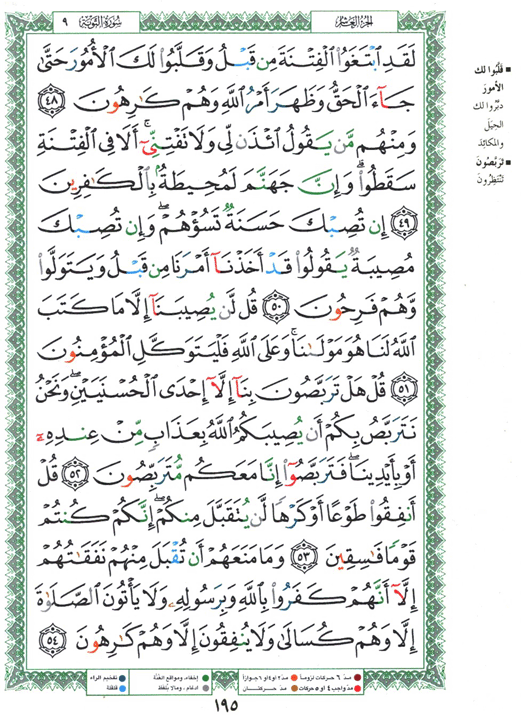 الجزء العاشر
سورة التوبة ٩
لَقَدِ ابْتَغَوُا الْفِتْنَةَ مِن قَبْلُ وَقَلَّبُوا لَكَ الْأُمُورَ حَتَّىٰ
جَاءَ الْحَقُّ وَظَهَرَ أَمْرُ اللَّهِ وَهُمْ كَارِهُونَ ٤٨
وَمِنْهُم مَّن يَقُولُ ائْذَن لِّي وَلَا تَفْتِنِّي ۚ أَلَا فِي الْفِتْنَةِ
سَقَطُوا ۗ وَإِنَّ جَهَنَّمَ لَمُحِيطَةٌ بِالْكَافِرِينَ
٤٩ إِن تُصِبْكَ حَسَنَةٌ تَسُؤْهُمْ ۖ وَإِن تُصِبْكَ
مُصِيبَةٌ يَقُولُوا قَدْ أَخَذْنَا أَمْرَنَا مِن قَبْلُ وَيَتَوَلَّوا
وَّهُمْ فَرِحُونَ ٥٠ قُل لَّن يُصِيبَنَا إِلَّا مَا كَتَبَ
اللَّهُ لَنَا هُوَ مَوْلَانَا ۚ وَعَلَى اللَّهِ فَلْيَتَوَكَّلِ الْمُؤْمِنُونَ
٥١ قُلْ هَلْ تَرَبَّصُونَ بِنَا إِلَّا إِحْدَى الْحُسْنَيَيْنِ ۖ وَنَحْنُ
نَتَرَبَّصُ بِكُمْ أَن يُصِيبَكُمُ اللَّهُ بِعَذَابٍ مِّنْ عِندِهِ
أَوْ بِأَيْدِينَا ۖ فَتَرَبَّصُوا إِنَّا مَعَكُم مُّتَرَبِّصُونَ ٥٢ قُلْ
أَنفِقُوا طَوْعًا أَوْ كَرْهًا لَّن يُتَقَبَّلَ مِنكُمْ ۖ إِنَّكُمْ كُنتُمْ
قَوْمًا فَاسِقِينَ ٥٣ وَمَا مَنَعَهُمْ أَن تُقْبَلَ مِنْهُمْ نَفَقَاتُهُمْ
إِلَّا أَنَّهُمْ كَفَرُوا بِاللَّهِ وَبِرَسُولِهِ وَلَا يَأْتُونَ الصَّلَاةَ
إِلَّا وَهُمْ كُسَالَىٰ وَلَا يُنفِقُونَ إِلَّا وَهُمْ كَارِهُونَ ٥٤
قَلَّبُوا لك
الأمورَ
دبّروا لك
الحِيَلَ
والمكائِدَ
تربّصُونَ
تَنْتَظِرُونَ
مدّ ٦ حركات لزوماً مدّ ٢ أو ٤ أو ٦ جوازاً إخفاء، ومواقع الغُنَّة تفخيم الراء
مدّ واجب ٤ أو ٥ حركات مدّ حركتان ادغام، وما لا يُلفَظ قلقلة
١٩٥